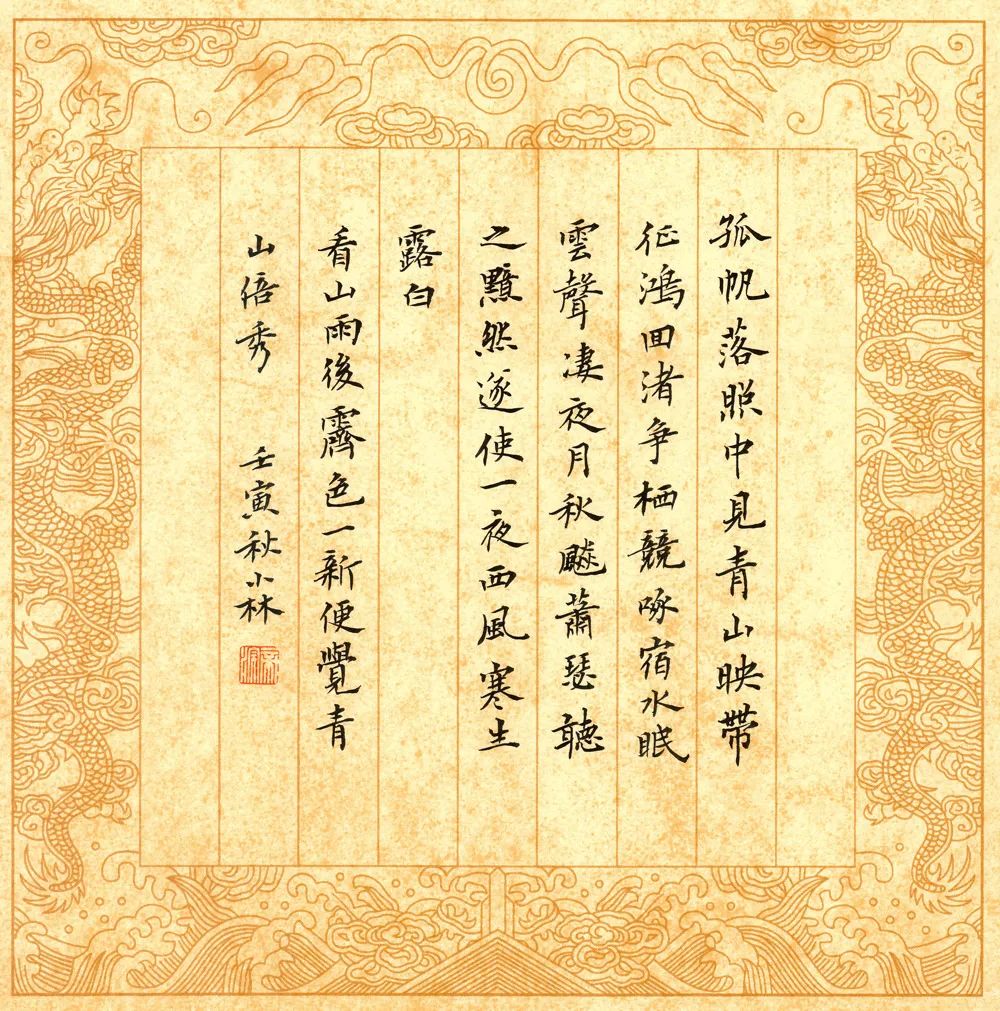 孤帆落照中見青山映帶
征鴻回渚爭栖競啄宿水眠
雲聲凄夜月秋飈蕭瑟聽
之黯然遂使一夜西風寒生
露白
看山雨後霽色一新便覺青
山倍秀
壬寅秋小林